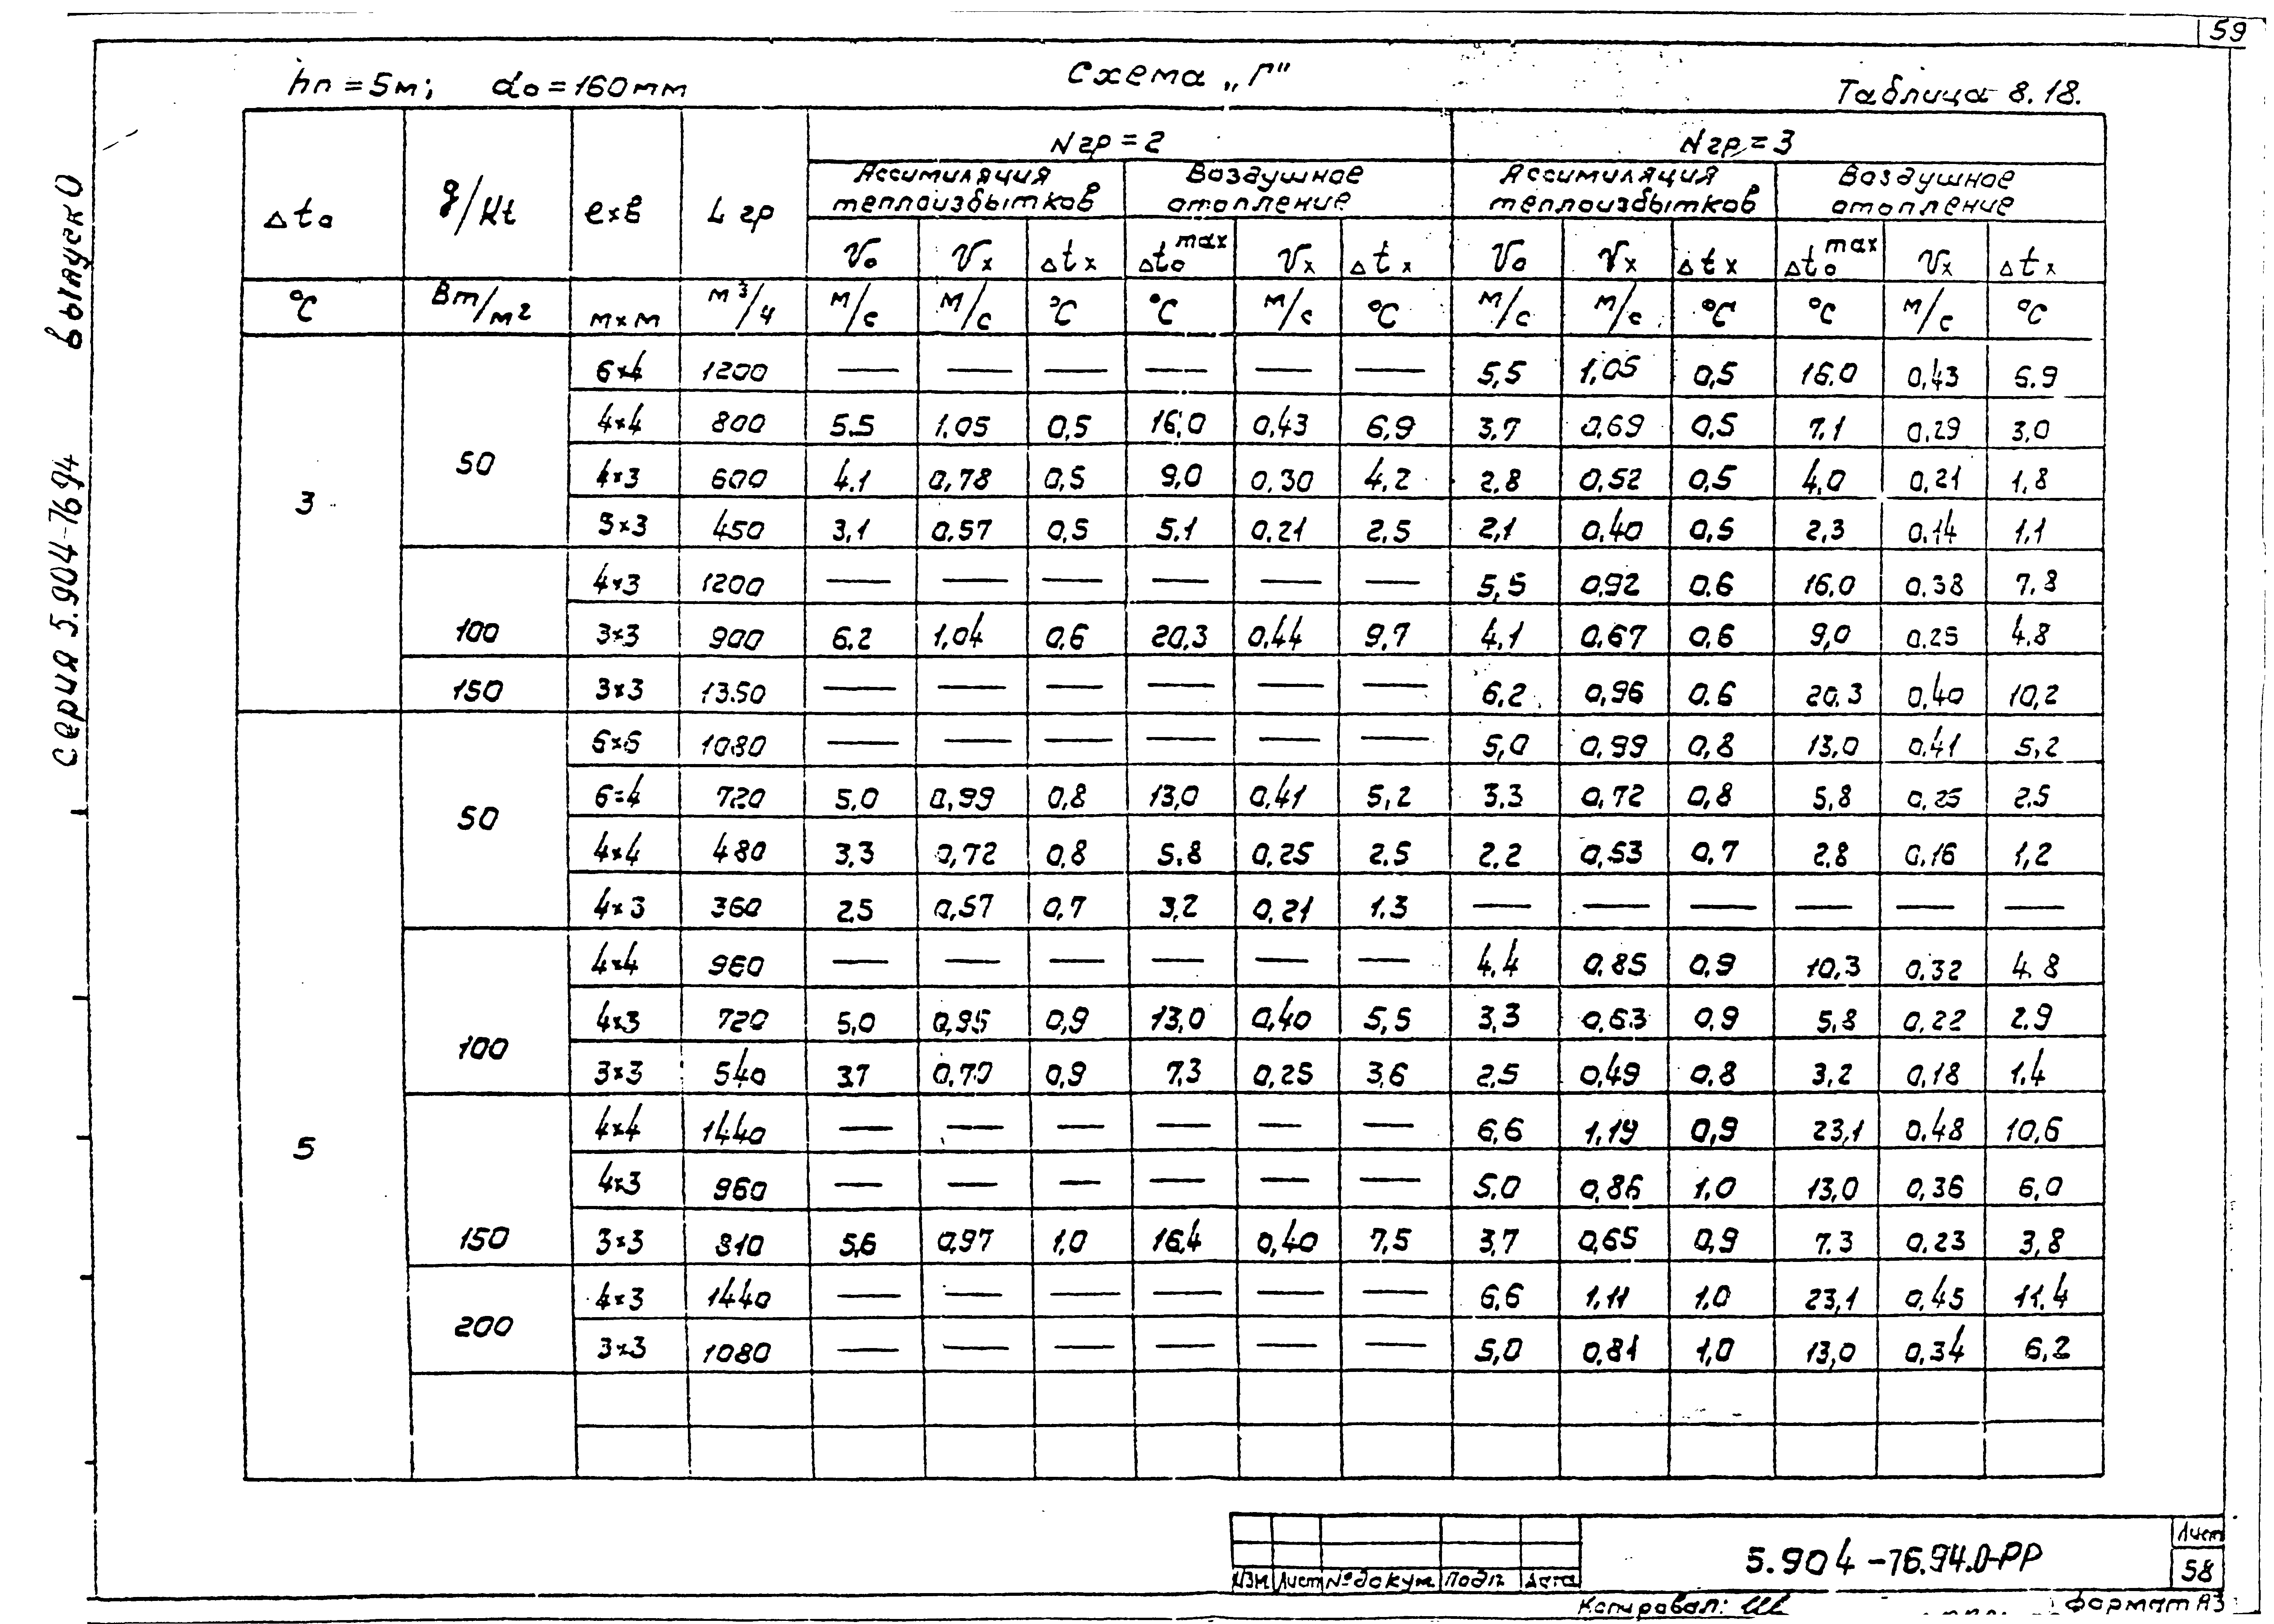 59
hп = 5м; do = 160мм
Схема „Г"
Таблица 8.18.
Δto q/Kt ℓxв L гр Nгр = 2 Nгр = 3
Ассимиляция теплоизбытков Воздушное отопление Ассимиляция теплоизбытков Воздушное отопление
Vo Vx Δtx Δto max Vx Δtx Vo Vx Δtx Δto max Vx Δtx
°C Вт/м2 мxм м3/ч м/с м/с °C °C м/с °C м/с м/с °C °C м/с °C
3 50 6x4 1200 — — — — — — 5,5 1,05 0,5 16.0 0,43 6.9
4x4 800 5.5 1.05 0,5 16,0 0,43 6,9 3,7 0,69 0,5 7,1 0,29 3,0
4x3 600 4.1 0,78 0,5 9,0 0,30 4,2 2,8 0,52 0,5 4,0 0,21 1,8
3x3 450 3,1 0,57 0,5 5,1 0,21 2,5 2,1 0,40 0,5 2,3 0,14 1,1
100 4x3 1200 — — — — — — 5,5 0,92 0.6 16,0 0,38 7,8
3x3 900 6.2 1,04 0,6 20,3 0,44 9,7 4,1 0,67 0,6 9,0 0.25 4.8
150 3x3 1350 — — — — — — 6,2 0,96 0.6 20.3 0,40 10,2
5 50 6x6 1080 — — — — — — 5,0 0,99 0,8 13,0 0.41 5,2
6x4 720 5,0 0,99 0,8 13,0 0,41 5,2 3.3 0,72 0,8 5,8 0,25 2.5
4x4 480 3,3 0,72 0,8 5.8 0,25 2.5 2.2 0,53 0,7 2,8 0,16 1,2
4x3 360 2.5 0,57 0,7 3,2 0,21 1.3 — — — — — —
100 4x4 960 — — — — — — 4,4 0,85 0,9 10,3 0.32 4.8
4x3 720 5,0 0,95 0,9 13,0 0,40 5,5 3,3 0,63 0,9 5,8 0,22 2,9
3x3 540 3,7 0,70 0,9 7,3 0,25 3,6 2,5 0,49 0,8 3,2 0,18 1.4
150 4x4 1440 — — — — — — 6,6 1,19 0,9 23,1 0.48 10,6
4x3 960 — — — — — — 5.0 0,86 1,0 13,0 0,36 6,0
3x3 810 5,6 0,97 1,0 16,4 0,40 7,5 3,7 0,65 0,9 7.3 0.23 3,8
200 4x3 1440 — — — — — — 6,6 1,11 1,0 23,1 0,45 11.4
3x3 1080 — — — — — — 5,0 0,81 1,0 13,0 0,34 6,2
Серия 5.904-76.94 выпуск 0
Изм Лист № докум Подп. Дата
5.904-76.94.0-РР
Лист
58
Копировал:
Формат А3